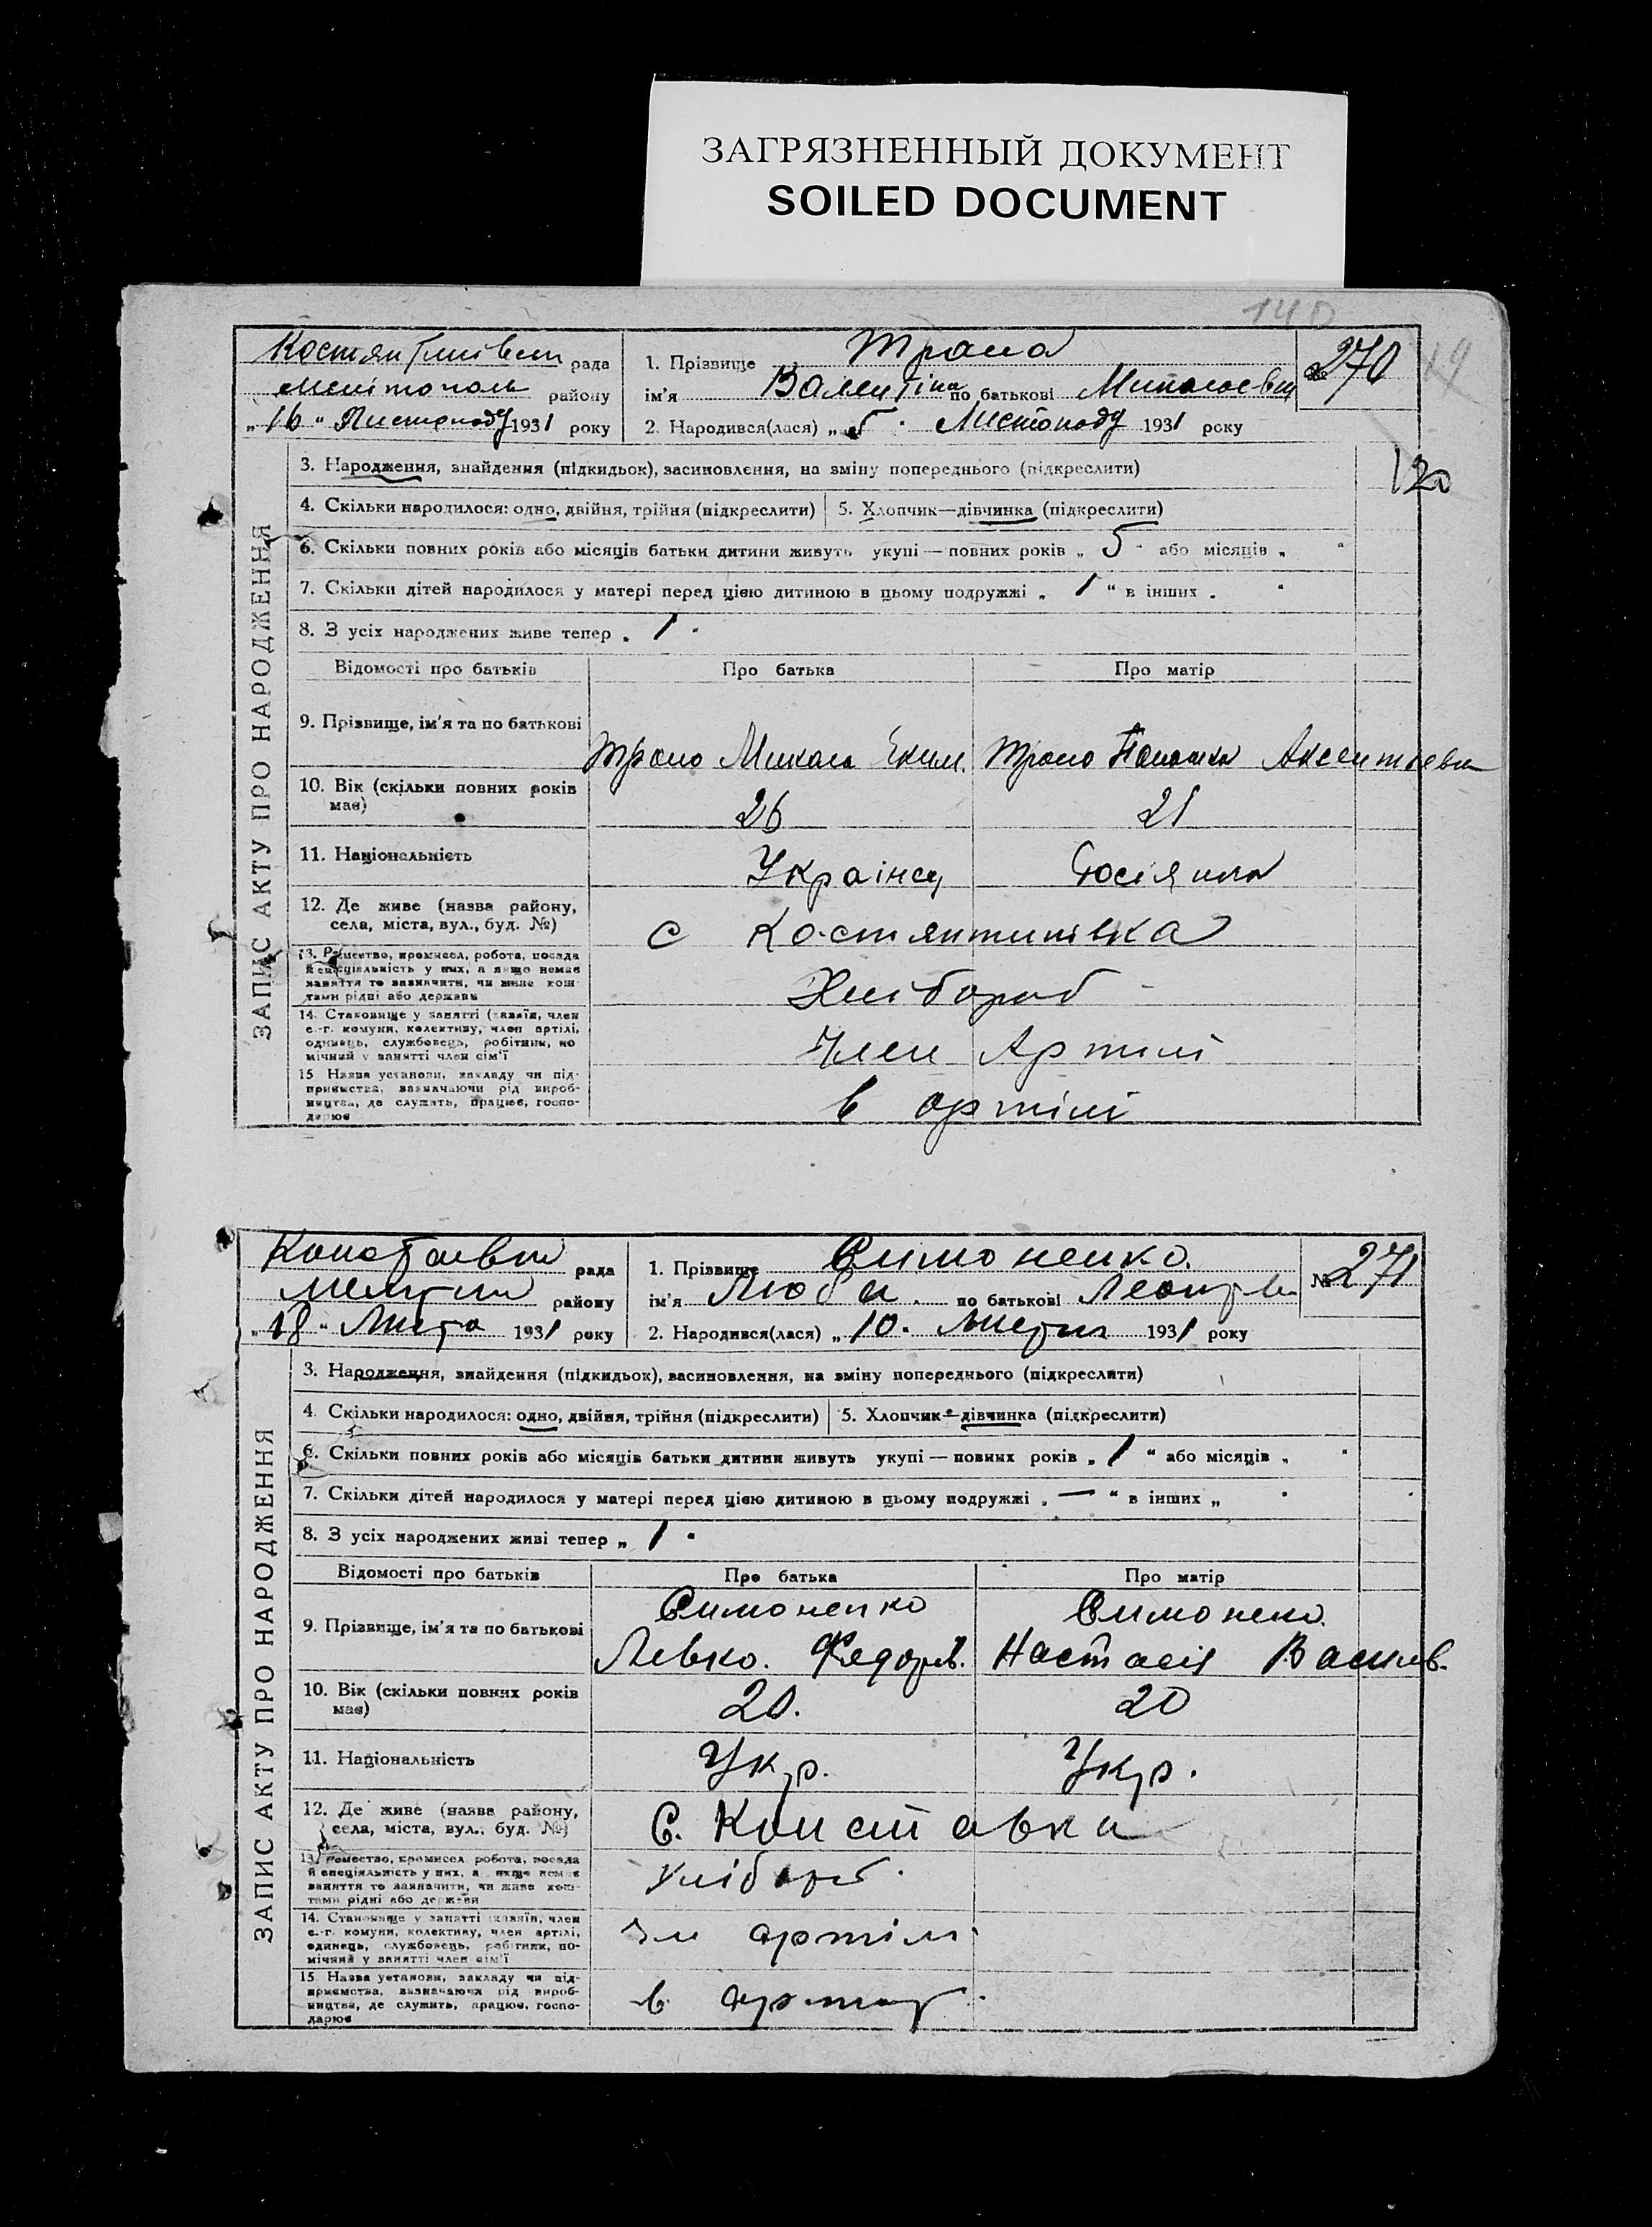 ЗАГРЯЗНЕННЫЙ ДОКУМЕНТ
SOILED DOCUMENT
140
ЗАПИС АКТУ ПРО НАРОДЖЕННЯ
рада
Мелітополь району
„16“ Листопаду 1931 року
1. Прізвище
№ 270
ім'я Валентіна по батькові
2. Народився(лася) „5“ Листопаду 1931 року
3. Народження, знайдення (підкидьок), засиновлення, на зміну попереднього (підкреслити)
120
4. Скільки народилося: одно, двійня, трійня (підкреслити) 5. Хлопчик—дівчинка (підкреслити)
6. Скільки повних років або місяців батьки дитини живуть укупі — повних років „5“ або місяців „ “
7. Скільки дітей народилося у матері перед цією дитиною в цьому подружжі „1“ в інших „ “
8. З усіх народжених живе тепер „1“
Відомості про батьків Про батька Про матір
9. Прізвище, ім'я та по батькові
Микола Яким.
10. Вік (скільки повних років має) 26 21
11. Національність Українец
12. Де живе (назва району, села, міста, вул., буд. №) с Костянтинівка
13. Ремество, промисел, робота, посада й спеціяльність у них, а якщо немає заняття то зазначити, чи живе коштами рідні або держави Хлібороб
14. Становище у занятті (хазяїн, член с.-г. комуни, колективу, член артілі, одинець, службовець, робітник, помічний у занятті член сім'ї Член Артілі
15 Назва установи, закладу чи підприємства, зазначаючи рід виробництва, де служить, працює, господарює в артілі
ЗАПИС АКТУ ПРО НАРОДЖЕННЯ
рада
району
„18“ 1931 року
1. Прізвище Симоненко.
№ 271
ім'я Люба. по батькові
2. Народився(лася) „10“ 1931 року
3. Народження, знайдення (підкидьок), засиновлення, на зміну попереднього (підкреслити)
4. Скільки народилося: одно, двійня, трійня (підкреслити) 5. Хлопчик—дівчинка (підкреслити)
6. Скільки повних років або місяців батьки дитини живуть укупі — повних років „1“ або місяців „ “
7. Скільки дітей народилося у матері перед цією дитиною в цьому подружжі „—“ в інших „ “
8. З усіх народжених живі тепер „1“
Відомості про батьків Про батька Про матір
9. Прізвище, ім'я та по батькові
Симоненко
Левко. Федоров. Настасія Васив.
10. Вік (скільки повних років має) 20. 20
11. Національність Укр. Укр.
12. Де живе (назва району, села, міста, вул., буд. №) С. Конставка
13. Ремество, промисел робота, посада й спеціяльність у них, а якще немає заняття то зазначити, чи живе коштами рідні або держави
14. Становище у занятті (хазяїн, член с.-г. комуни, колективу, член артілі, одинець, службовець, робітник, помічний у занятті член сім'ї артіли
15 Назва установи, закладу чи підприємства, зазначаючи рід виробництва, де служить, працює, господарює в